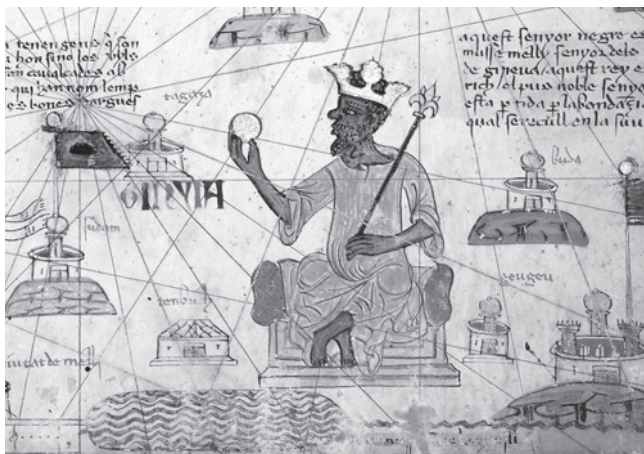 a tenen gens q̃ son
a hon sino los ulls
fan caualcades ab
qui han nom lemps
e s bones dargues
aquest senyor negre es
musse melly senyor dels
de gineua aquest rey e
rich el pus noble senyo
esta p tida p labondaçi
qual se recull en la suu
tagaza
buda
GINVIA
sudam
tenbuch
geugeu
ciutat de melli